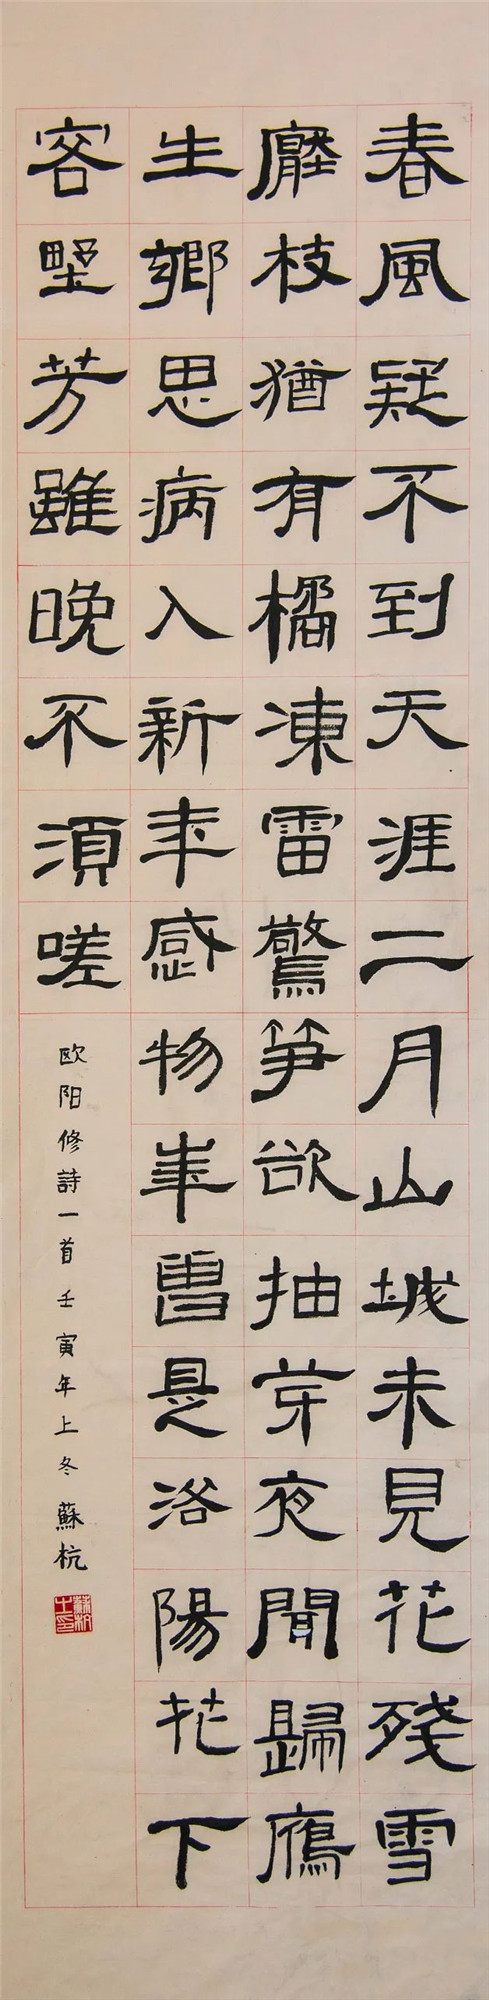 春風疑不到天涯二月山城未見花殘雪
壓枝猶有橘凍雷驚笋欲抽芽夜聞歸鴈
生鄉思病入新年感物華曾是洛陽花下
客野芳雖晚不須嗟
欧阳修詩一首壬寅年上冬蘇杭
蘇杭之印